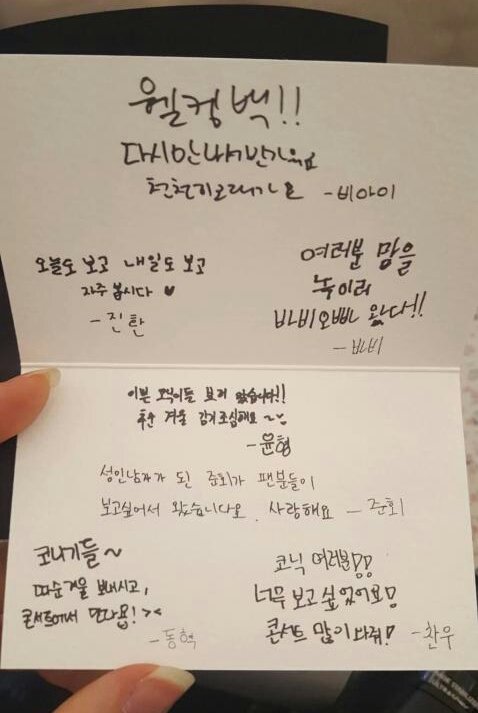 웰컴백!!
다시만나서반가워요
천천히오래가요 -비아이
오늘도 보고 내일도 보고
자주 봅시다 ♥
-진환
여러분 맘을
녹이러
바비오빠 왔다!!
-바비
이쁜 코닉이들 보러 왔습니다!!
추운 겨울 감기조심해요~♡
-윤형
성인남자가 된 준회가 팬분들이
보고싶어서 왔습니다요. 사랑해요 -준회
코나기들~
따순겨울 보내시고,
콘서트에서 만나욥!><
-동혁
코닉 여러분!!
너무 보고싶었어요!
콘서트 많이 와줘! -찬우